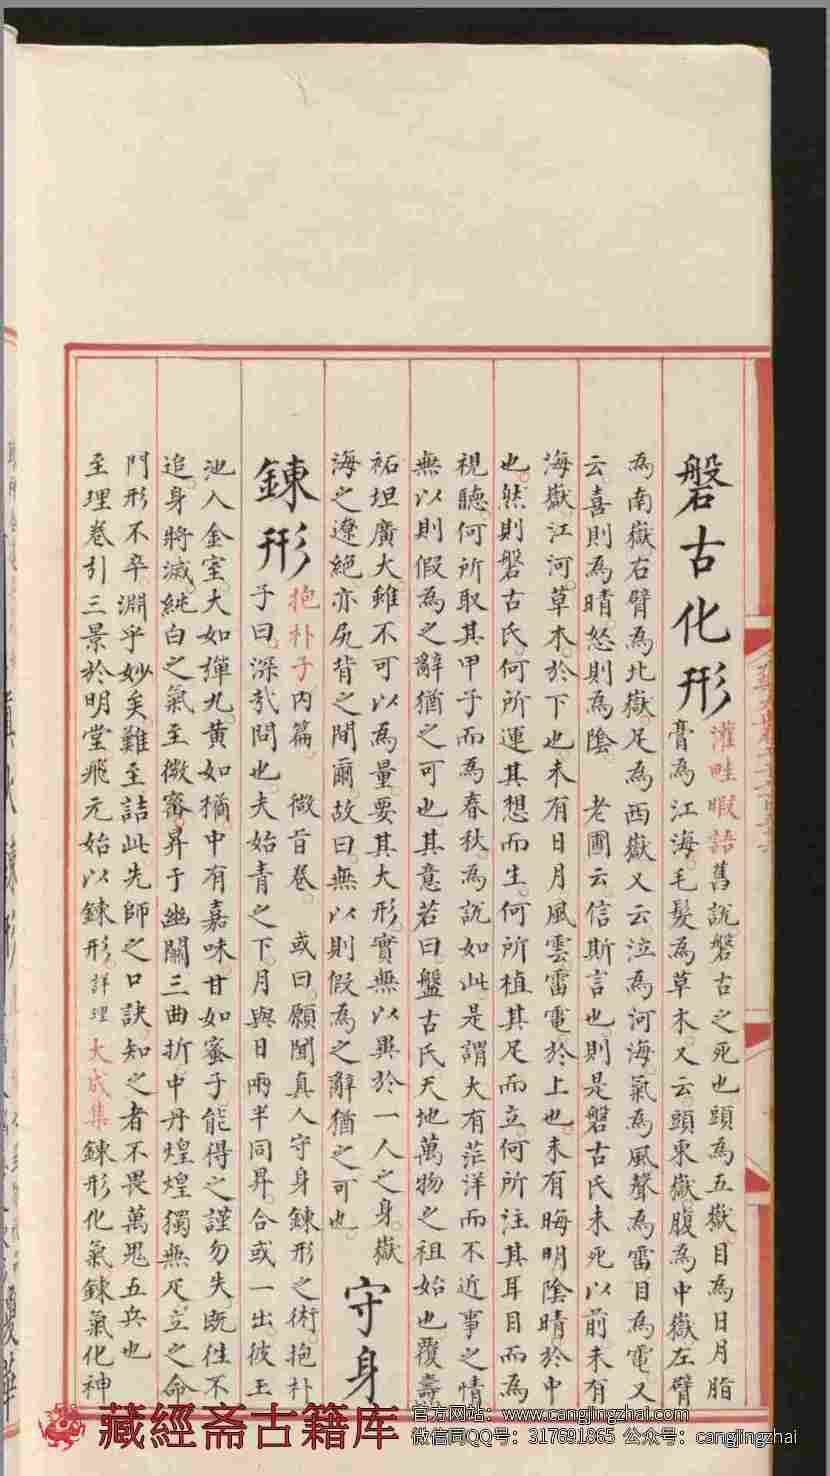 磐古化形
灌畦暇語舊說磐古之死也頭為五嶽目為日月脂
膏為江海毛髮為草木又云頭東嶽腹為中嶽左臂
為南嶽右臂為北嶽足為西嶽又云泣為河海氣為風聲為雷目為電又
云喜則為晴怒則為陰 老圃云信斯言也則是磐古氏未死以前未有
海嶽江河草木於下也未有日月風雲雷電於上也未有晦明陰晴於中
也然則磐古氏何所運其想而生何所植其足而立何所注其耳目而為
視聽何所取其甲子而為春秋為說如此是謂大有茫洋而不近事之情
無以則假為之辭猶之可也其意若曰盤古氏天地萬物之祖始也覆壽
袥坦廣大雖不可以為量要其大形實無以異於一人之身嶽
海之遼絕亦尻背之間爾故曰無以則假為之辭猶之可也
守身
鍊形
抱朴子內篇 微旨卷 或曰願聞真人守身鍊形之術抱朴
子曰深哉問也夫始青之下月與日兩半同昇合或一出彼玉
池入金室大如彈丸黃如橘中有嘉味甘如蜜子能得之謹勿失既往不
追身將滅純白之氣至微密昇于幽關三曲折中丹煌煌獨無疋立之命
門形不卒淵乎妙矣難至詰此先師之口訣知之者不畏萬鬼五兵也
至理卷引三景於明堂飛元始以鍊形詳理 大成集鍊形化氣鍊氣化神
藏經斋古籍库
官方网站：www.cangjingzhai.com
微信同QQ号：317691865 公众号：cangjingzhai